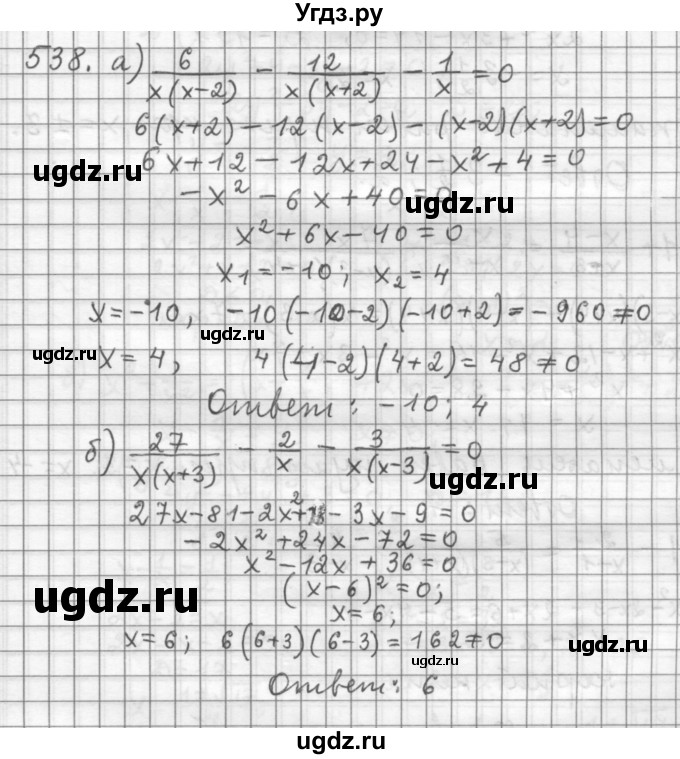 Угдз.ру
538. а) 6/(x(x-2)) - 12/(x(x+2)) - 1/x = 0
6(x+2) - 12(x-2) - (x-2)(x+2) = 0
6x+12 - 12x+24 - x² + 4 = 0
ugdz.ru
- x² - 6x + 40 = 0
ugdz.ru
x² + 6x - 40 = 0
x₁ = -10; x₂ = 4
x = -10, -10(-10-2)(-10+2) = -960 ≠ 0
ugdz.ru
ugdz.ru
x = 4, 4(4-2)(4+2) = 48 ≠ 0
Ответ: -10; 4
б) 27/(x(x+3)) - 2/x - 3/(x(x-3)) = 0
ugdz.ru
27x-81-2x²+18-3x-9=0
-2x²+24x-72=0
x²-12x+36=0
ugdz.ru
(x-6)²=0;
x=6;
x=6; 6(6+3)(6-3)=162≠0
ugdz.ru
ugdz.ru
Ответ: 6
ugdz.ru